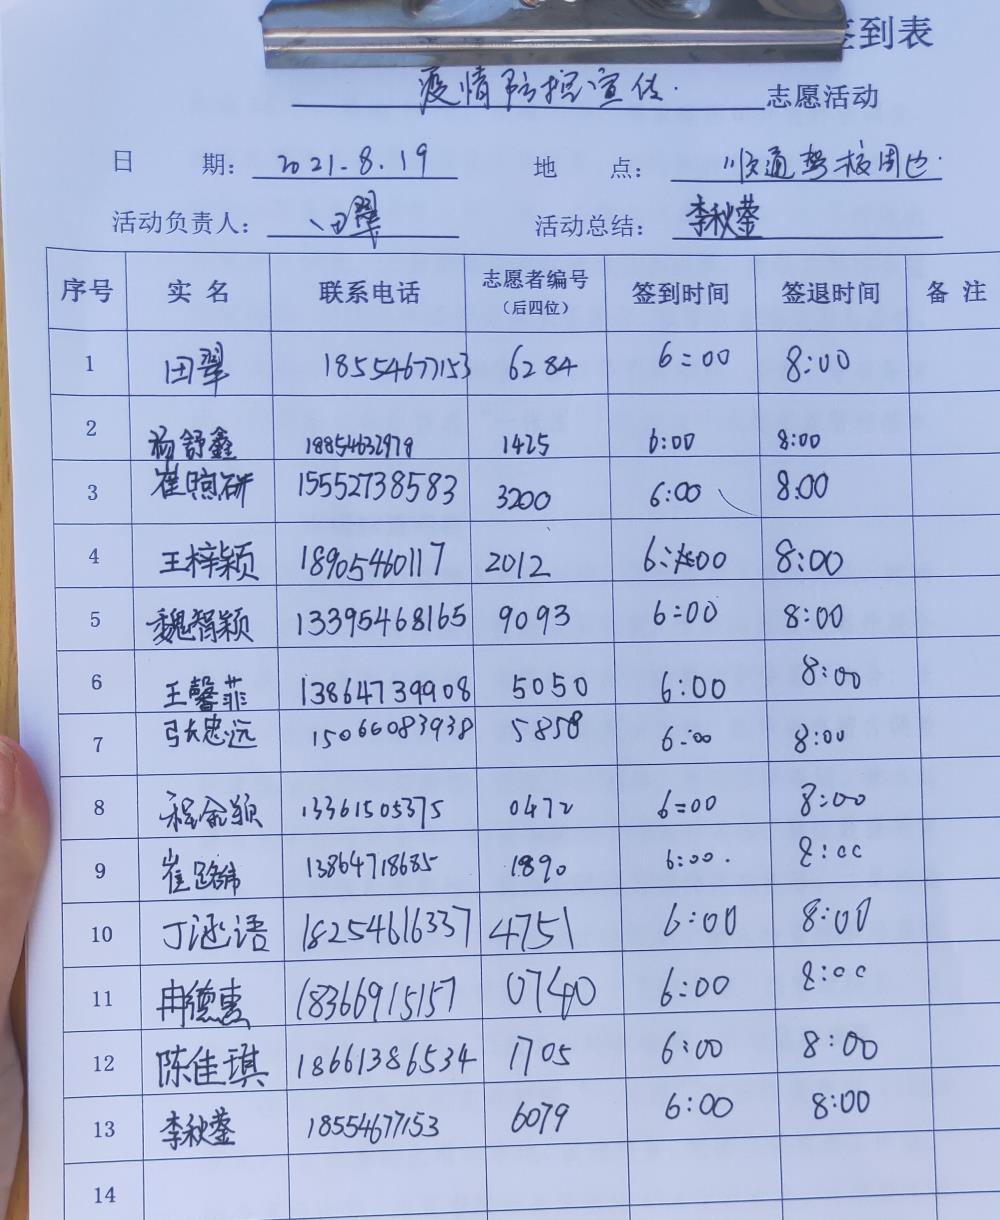 签到表
疫情防控宣传 志愿活动
日 期：2021.8.19 地 点：顺通驾校周边
活动负责人：田翠 活动总结：李秋蓥
序号 实 名 联系电话 志愿者编号（后四位） 签到时间 签退时间 备 注
1 田翠 18554677153 6284 6:00 8:00
2 杨舒鑫 18854632978 1425 6:00 8:00
3 崔煦研 15552738583 3200 6:00 8:00
4 王梓颖 18905460117 2012 6:00 8:00
5 魏智颖 13395468165 9093 6:00 8:00
6 王馨菲 13864739908 5050 6:00 8:00
7 张忠远 15066083938 5858 6:00 8:00
8 程金颖 13361505375 0472 6:00 8:00
9 崔路 13864718685 1890 6:00 8:00
10 丁涵语 18254616337 4751 6:00 8:00
11 冉德惠 18366915157 0740 6:00 8:00
12 陈佳琪 18661386534 1705 6:00 8:00
13 李秋蓥 18554677153 6079 6:00 8:00
14